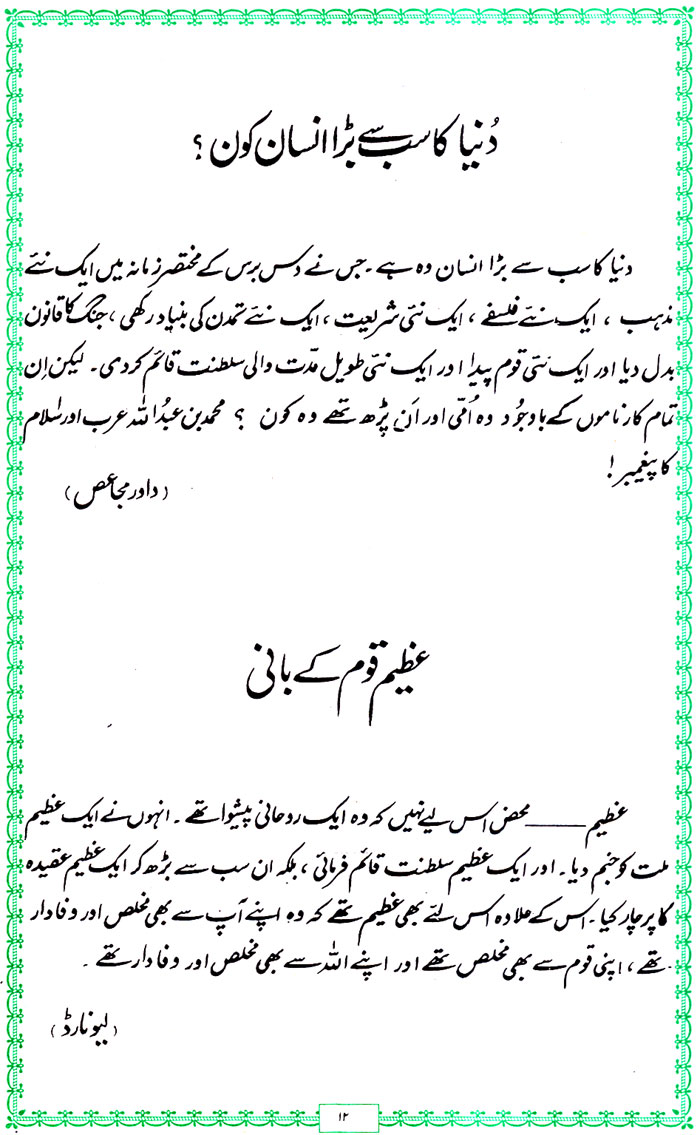 دُنیا کا سب سے بڑا انسان کون ؟
دنیا کا سب سے بڑا انسان وہ ہے ۔ جس نے دس برس کے مختصر زمانہ میں ایک نئے
مذہب ، ایک نئے فلسفے ، ایک نئی شریعت ، ایک نئے تمدن کی بنیاد رکھی ، جنگ کا قانون
بدل دیا اور ایک نئی قوم پیدا اور ایک نئی طویل مدّت والی سلطنت قائم کر دی ۔ لیکن اِن
تمام کارناموں کے باوجُود وہ اُمّی اور اَن پڑھ تھے وہ کون ؟ محمد بن عبدُ اللہ عرب اور اسلام
کا پیغمبر !
( داور مجاعص )
عظیم قوم کے بانی
عظیم ــــــــ محض اس لیے نہیں کہ وہ ایک روحانی پیشوا تھے ۔ انہوں نے ایک عظیم
ملت کو جنم دیا ۔ اور ایک عظیم سلطنت قائم فرمائی ، بلکہ ان سب سے بڑھ کر ایک عظیم عقیدہ
کا پرچار کیا ۔ اس کے علاوہ اس لئے بھی عظیم تھے کہ وہ اپنے آپ سے بھی مخلص اور وفادار
تھے ، اپنی قوم سے بھی مخلص تھے اور اپنے اللہ سے بھی مخلص اور وفادار تھے ۔
( لیونارڈ )
۱۲